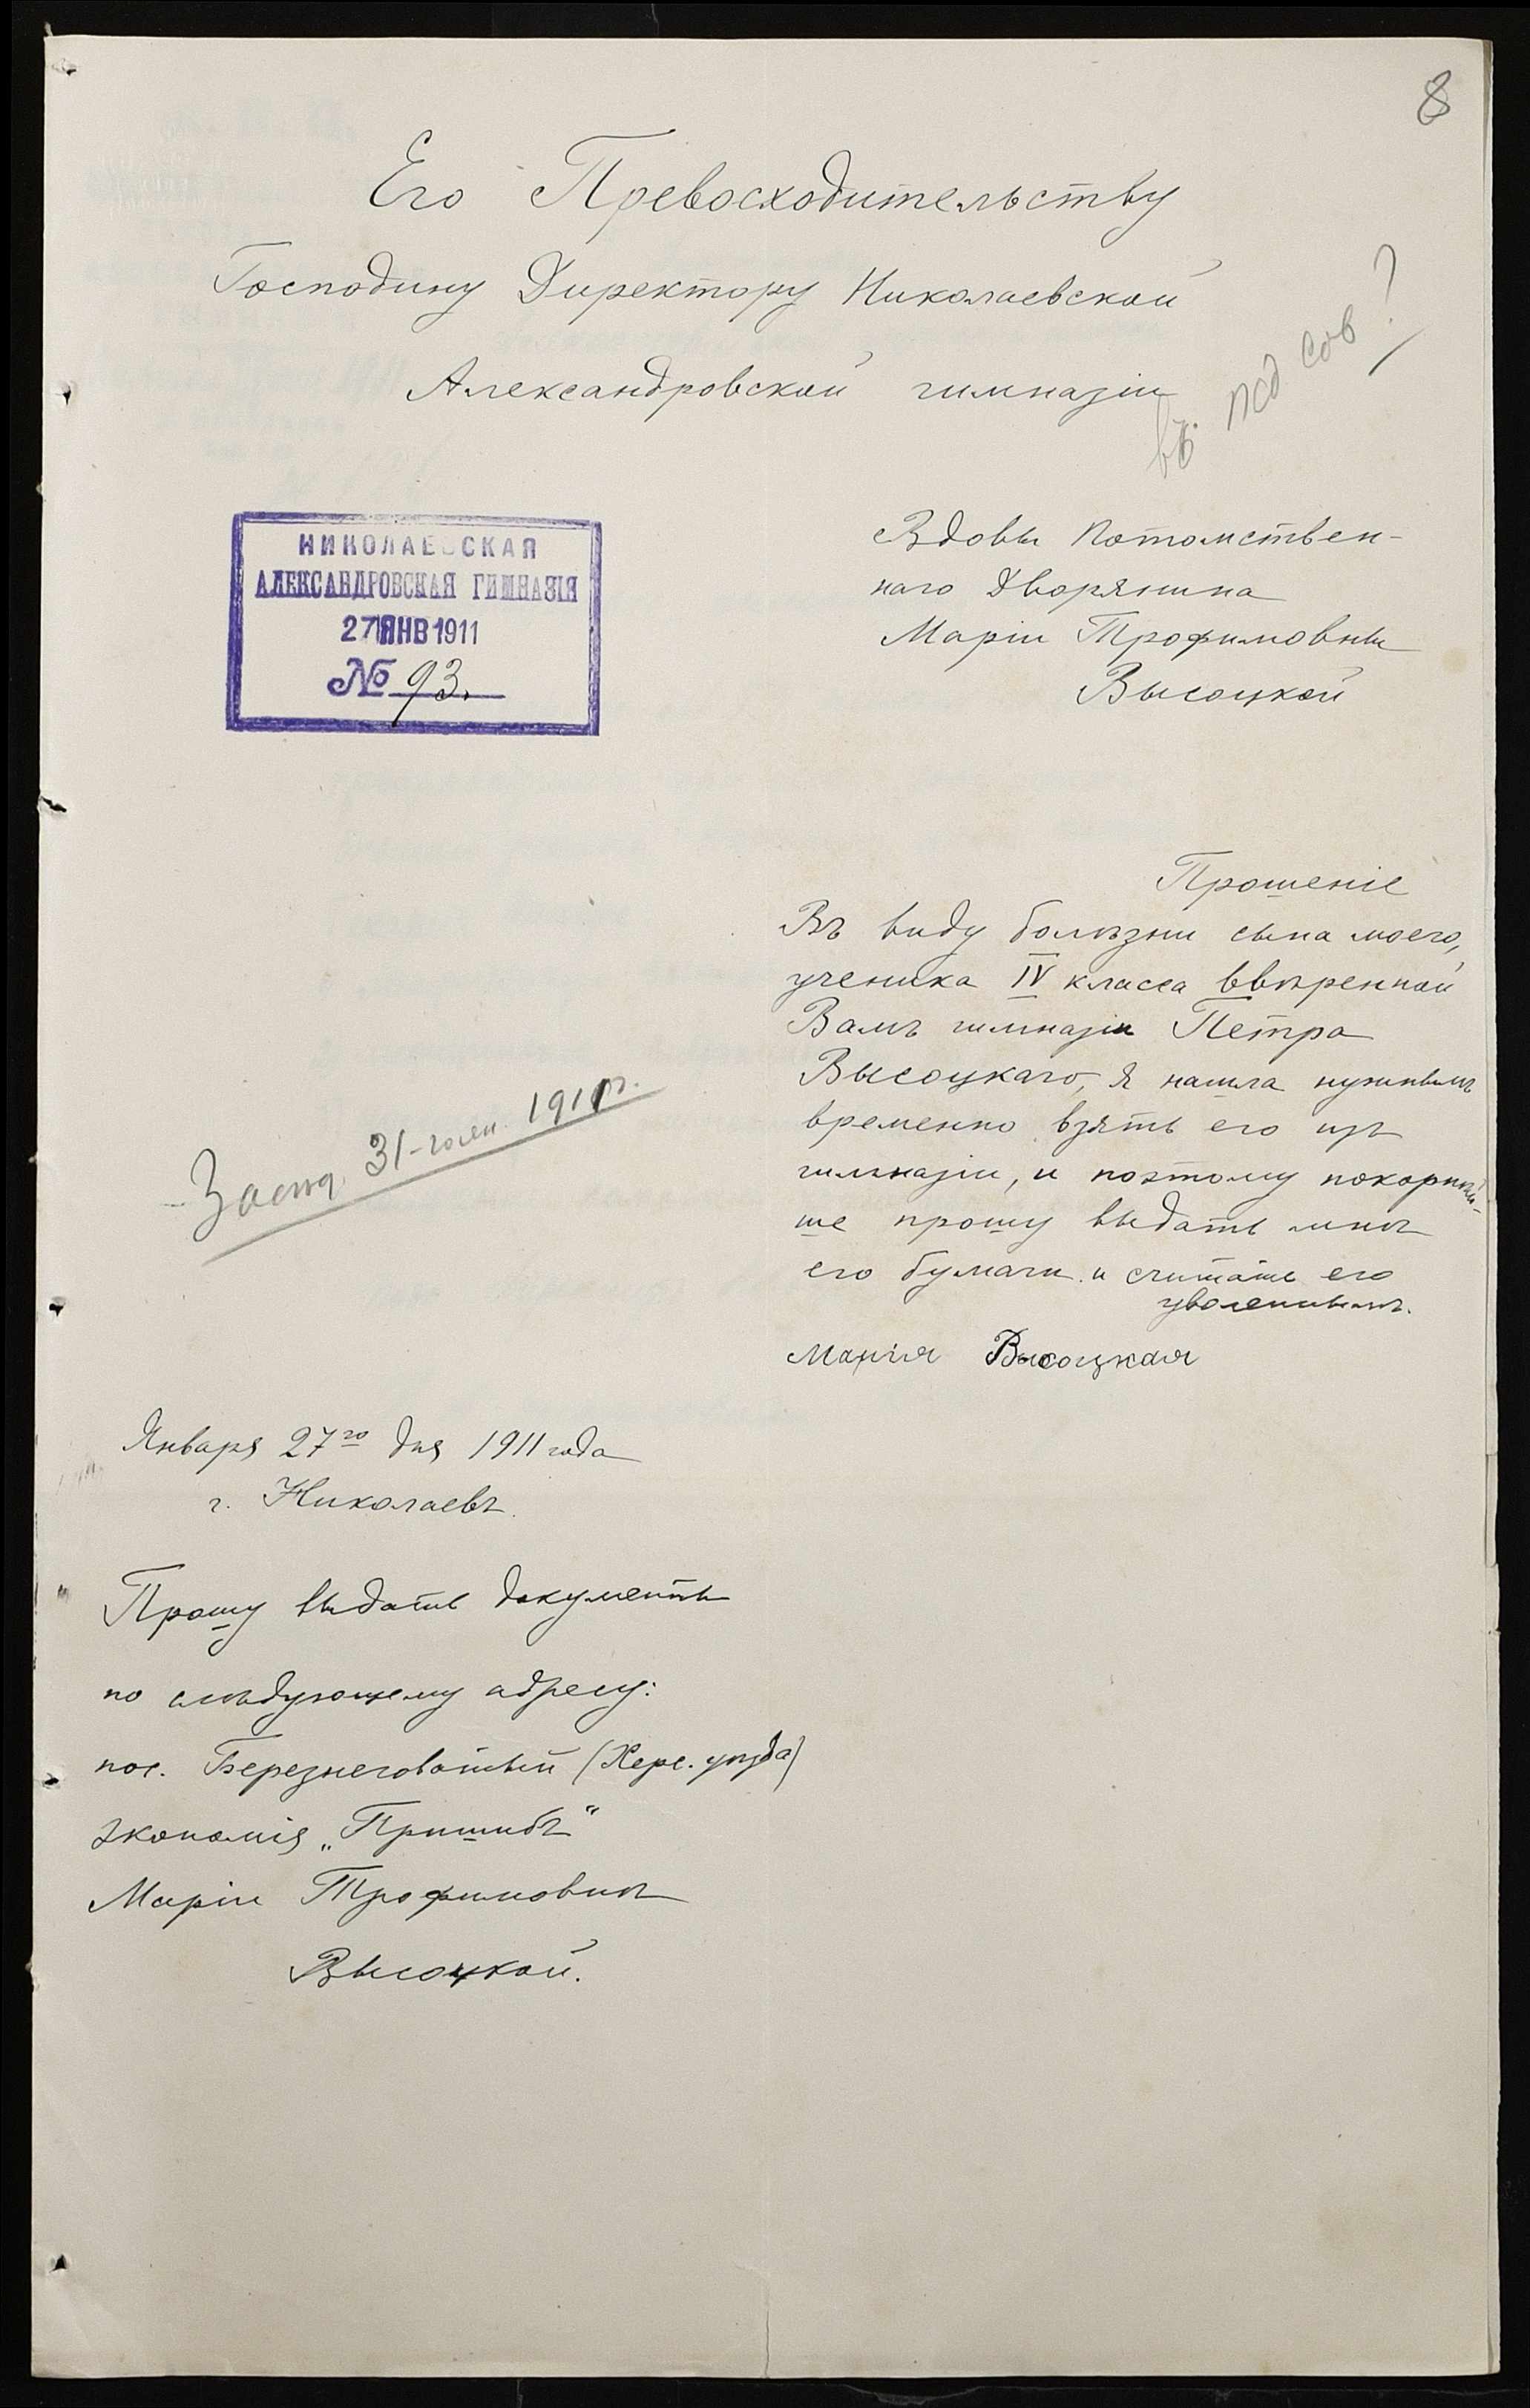 8
Его Превосходительству
Господину Директору Николаевской
Александровской гимназіи
въ пед сов
НИКОЛАЕВСКАЯ
АЛЕКСАНДРОВСКАЯ ГИМНАЗІЯ
27 ЯНВ 1911
№ 93.
Вдовы Потомствен-
наго Дворянина
Маріи Трофимовны
Высоцкой
Прошеніе
Въ виду болѣзни сына моего,
ученика IV класса ввѣренной
Вамъ гимназіи Петра
Высоцкаго, я нашла нужнымъ
временно взять его изъ
гимназіи, и поэтому покорнѣй-
ше прошу выдать мнѣ
его бумаги и считать его
уволеннымъ.
Марія Высоцкая
31-го ян. 1911 г.
Января 27го дня 1911 года
г. Николаевъ.
Прошу выдать документы
по слѣдующему адресу:
пос. Березнеговатый (Херс. уѣзда)
экономія „Пришибъ"
Маріи Трофимовнѣ
Высоцкой.